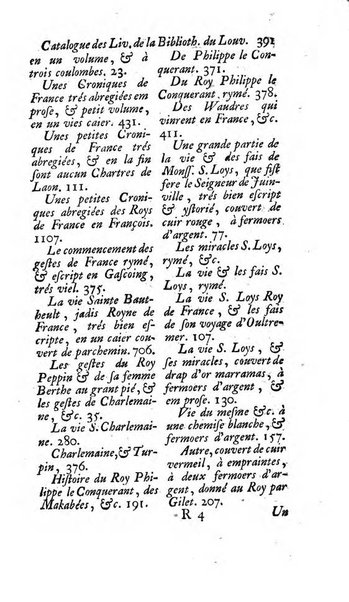 Catalogue des Liv. de la Biblioth. du Louv. 391
en un volume, & à
trois coulombes. 23.
Unes Croniques de
France trés abregiées em
prose, & petit volume,
en un vies caier. 431.
Unes petites Croni-
ques de France trés
abregiées, & en la fin
sont aucun Chartres de
Laon. 111.
Unes petites Croni-
ques abregiées des Roys
de France en François.
1107.
Le commencement des
gestes de France rymé,
& escript en Gascoing,
trés viel. 375.
La vie Sainte Baut-
heult, jadis Royne de
France, trés bien es-
cripte, en un caier cou-
vert de parchemin. 706.
Les gestes du Roy
Peppin & de sa femme
Berthe au grant pié, &
les gestes de Charlemai-
ne, &c. 35.
La vie S. Charlemai-
ne. 280.
Charlemaine, & Tur-
pin, 376.
Histoire du Roy Phi-
lippe le Conquerant, des
Makabées, &c. 191.
De Philippe le Con-
querant. 371.
Du Roy Philippe le
Conquerant rymé. 378.
Des Waudres qui
vinrent en France, &c.
411.
Une grande partie de
la vie & des fais de
Monss. S. Loys, que fist
fere le Seigneur de Juin-
ville, trés bien escript
& ystorié, couvert de
cuir rouge, à fermoers
d'argent. 77.
Les miracles S. Loys,
rymé, &c.
La vie & les fais S.
Loys, rymé.
La vie S. Loys Roy
de France, & les fais
de son voyage d'Oultre-
mer. 107.
La vie S. Loys, &
ses miracles, couvert de
drap d'or marramas, à
fermoers d'argent, &
em prose. 130.
Vie du mesme &c. à
une chemise blanche, &
fermoers d'argent. 157.
Autre, couvert de cuir
vermeil, à empraintes,
à deux fermoers d'ar-
gent, donné au Roy par
Gilet. 207.
R 4 Un